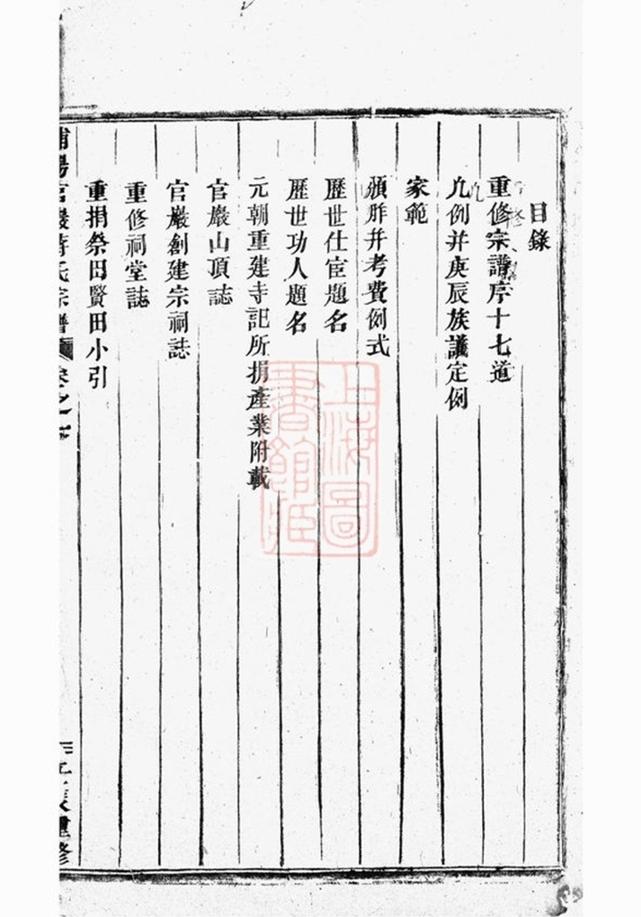 目錄
重修宗譜序十七道
凡例并庚辰族議定例
家範
頒胙并考費例式
歷世仕宦題名
歷世功人題名
元朝重建寺記所捐產業附載
官巖山頂誌
官巖創建宗祠誌
重修祠堂誌
重捐祭田賢田小引
浦陽官巖蔣氏宗譜 卷之一
重修
上海圖書館藏